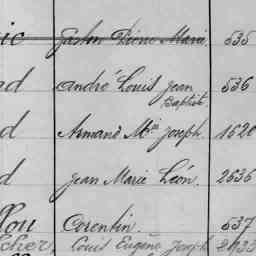 ic Gaston Pierre Marie 535
d André Louis Jean Baptiste. 536
d Armand Mie Joseph. 1620
d Jean Marie Léon. 2636
llou Corentin. 537
cher, Louis Eugène Joseph